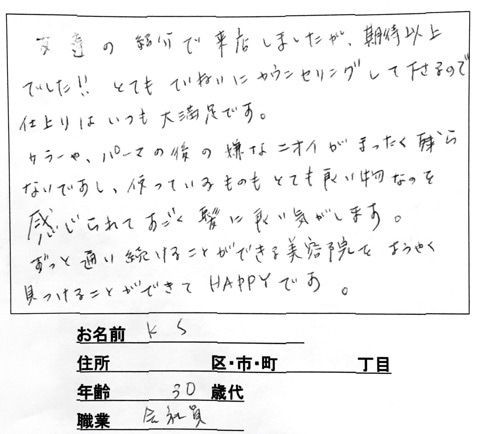 友達の紹介で来店しましたが、期待以上
でした!! とてもていねいにカウンセリングして下さるので
仕上りはいつも大満足です。
カラーや、パーマの後の嫌なニオイがまったく残ら
ないですし、使っているものもとても良い物なのを
感じられてすごく髪に良い気がします。
ずっと通い続けることができる美容院をようやく
見つけることができてHAPPYです。
お名前 K S
住所 区・市・町 丁目
年齢 30 歳代
職業 会社員